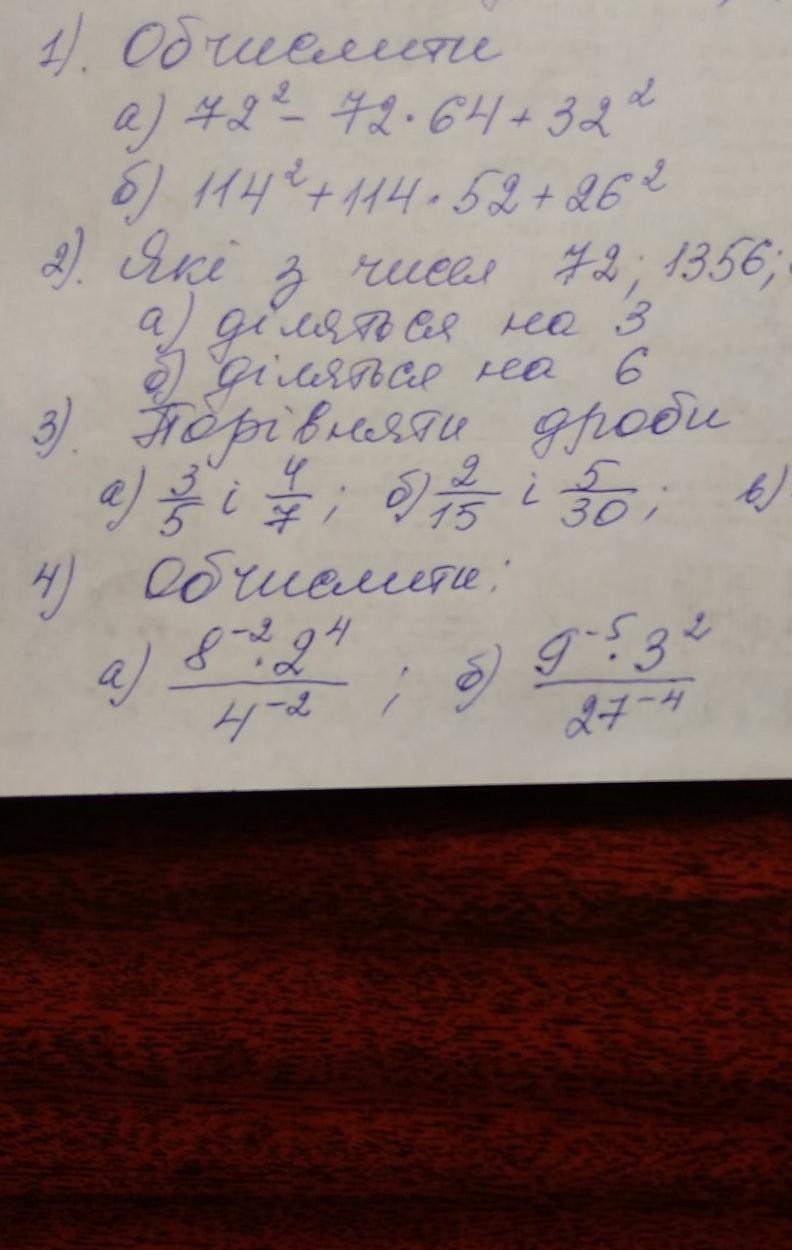 1). Обчислити
а) 72² - 72·64 + 32²
б) 114² + 114·52 + 26²
2). Які з чисел 72; 1356;
а) діляться на 3
б) діляться на 6
3). Порівняти дроби
а) 3/5 і 4/7; б) 2/15 і 5/30; в)
4) Обчислити:
а) 8⁻²·2⁴/4⁻² ; б) 9⁻⁵·3²/27⁻⁴